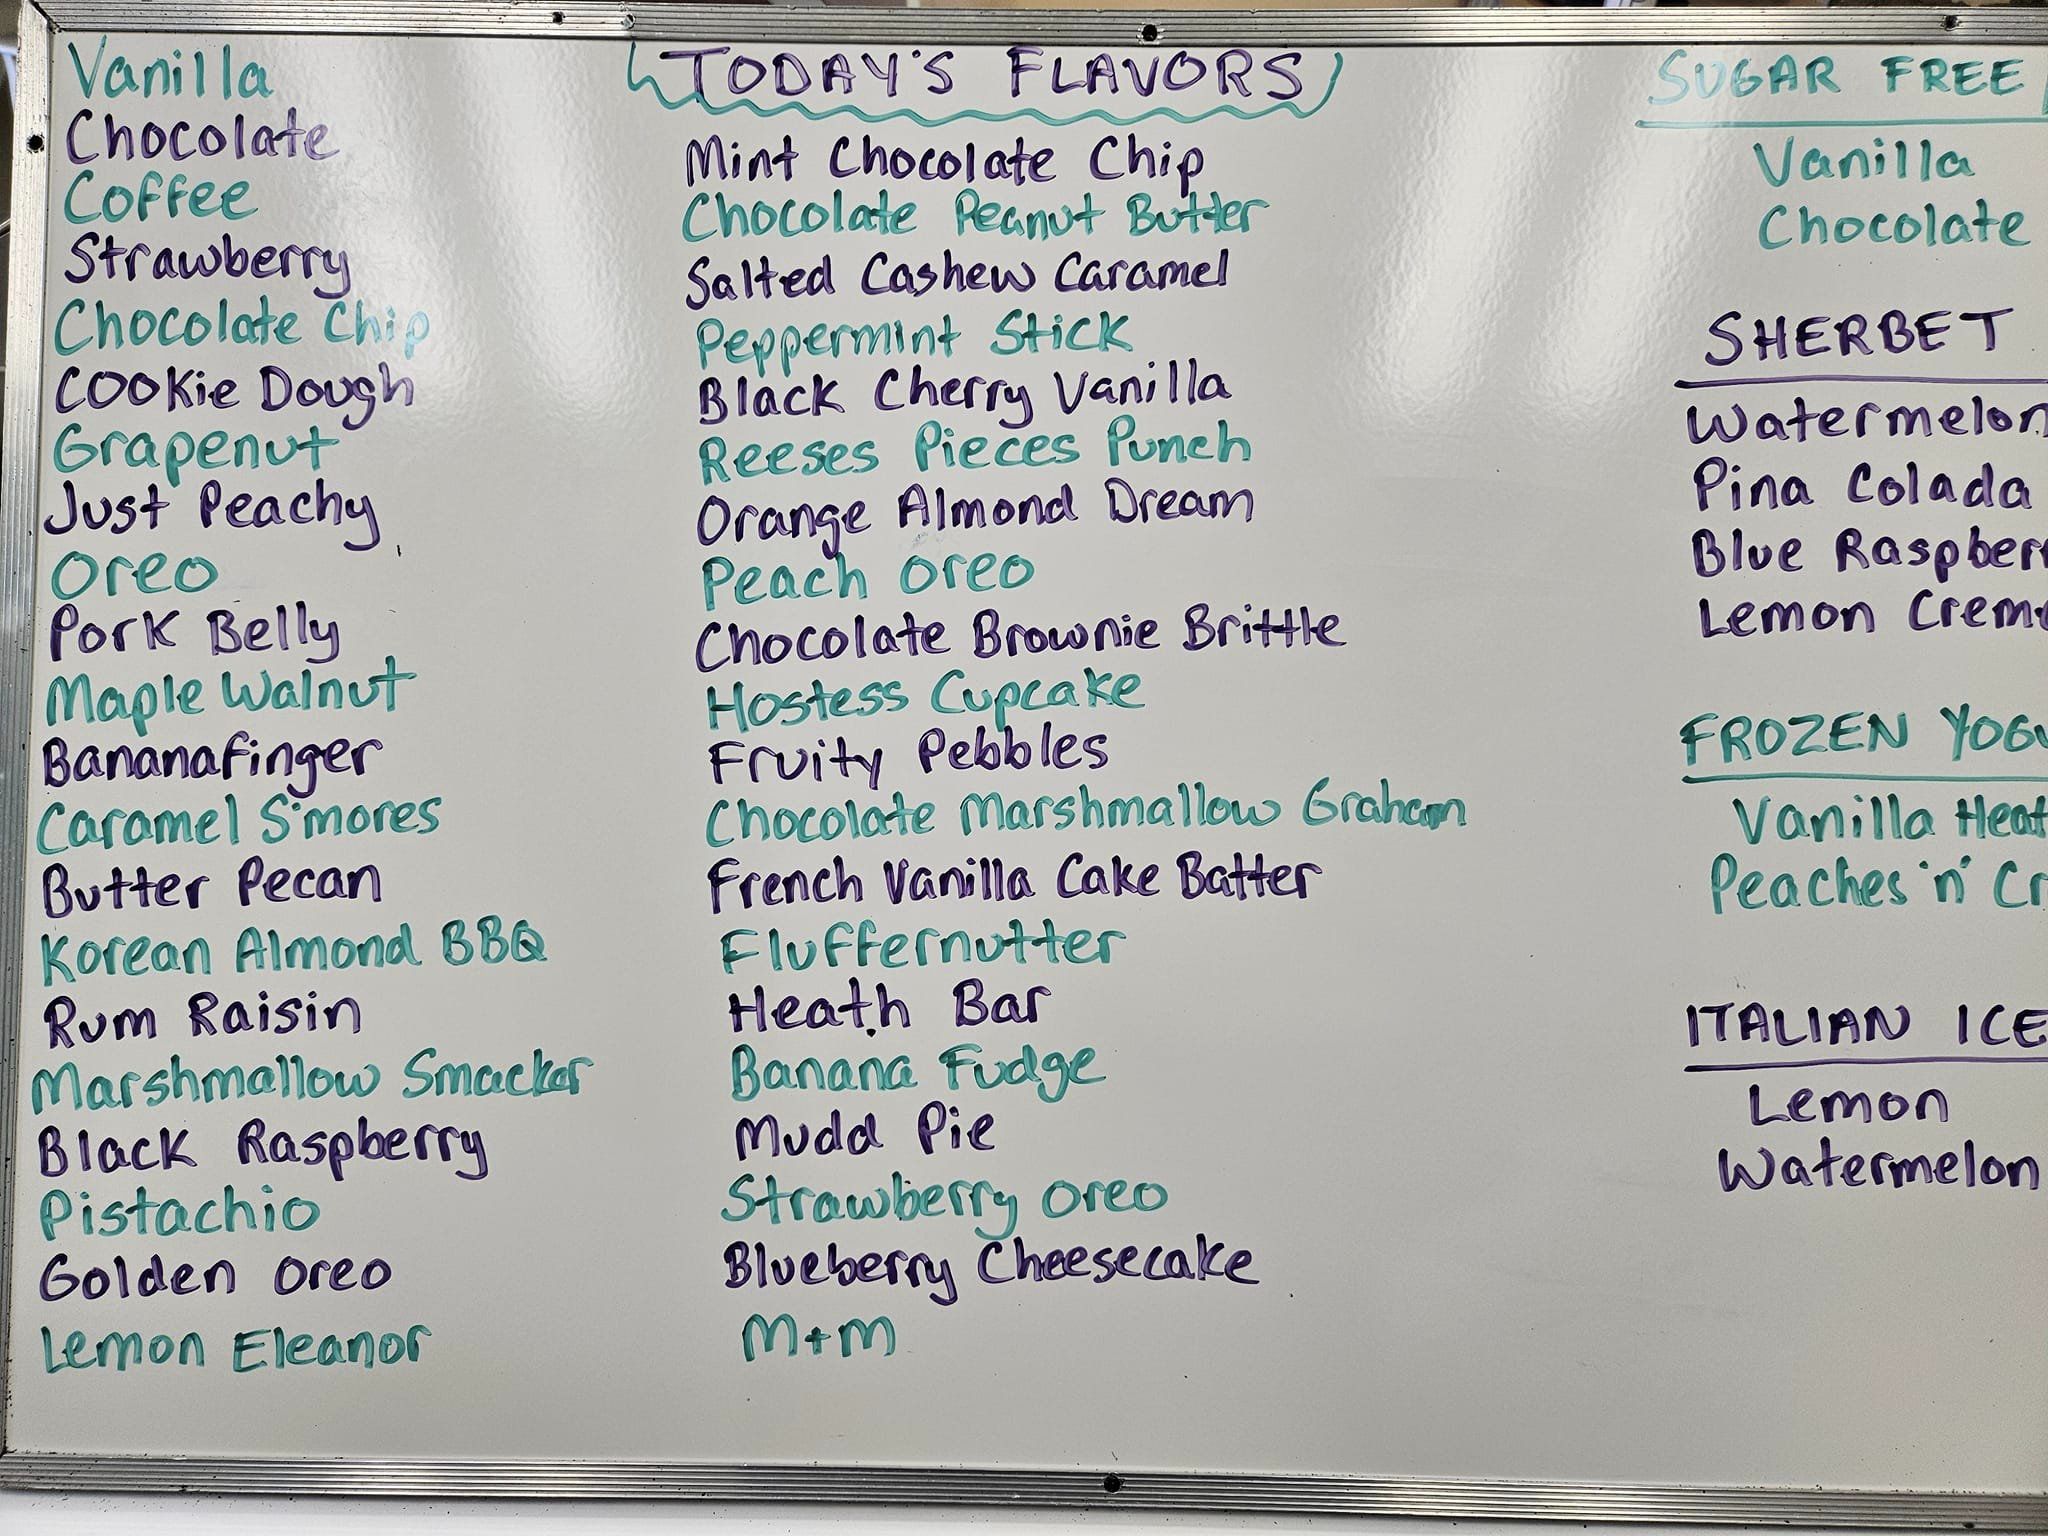 Vanilla
Chocolate
Coffee
Strawberry
Chocolate Chip
Cookie Dough
Grapenut
Just Peachy
Oreo
Pork Belly
Maple Walnut
Bananafinger
Caramel S'mores
Butter Pecan
Korean Almond BBQ
Rum Raisin
Marshmallow Smacker
Black Raspberry
Pistachio
Golden Oreo
Lemon Eleanor
TODAY'S FLAVORS
Mint Chocolate Chip
Chocolate Peanut Butter
Salted Cashew Caramel
Peppermint Stick
Black Cherry Vanilla
Reeses Pieces Punch
Orange Almond Dream
Peach Oreo
Chocolate Brownie Brittle
Hostess Cupcake
Fruity Pebbles
Chocolate Marshmallow Graham
French Vanilla Cake Batter
Fluffernutter
Heath Bar
Banana Fudge
Mudd Pie
Strawberry Oreo
Blueberry Cheesecake
M+M
SUGAR FREE
Vanilla
Chocolate
SHERBET
Watermelon
Pina Colada
Blue Raspberr
Lemon Creme
FROZEN YOGU
Vanilla Heat
Peaches 'n' Cr
ITALIAN ICE
Lemon
Watermelon